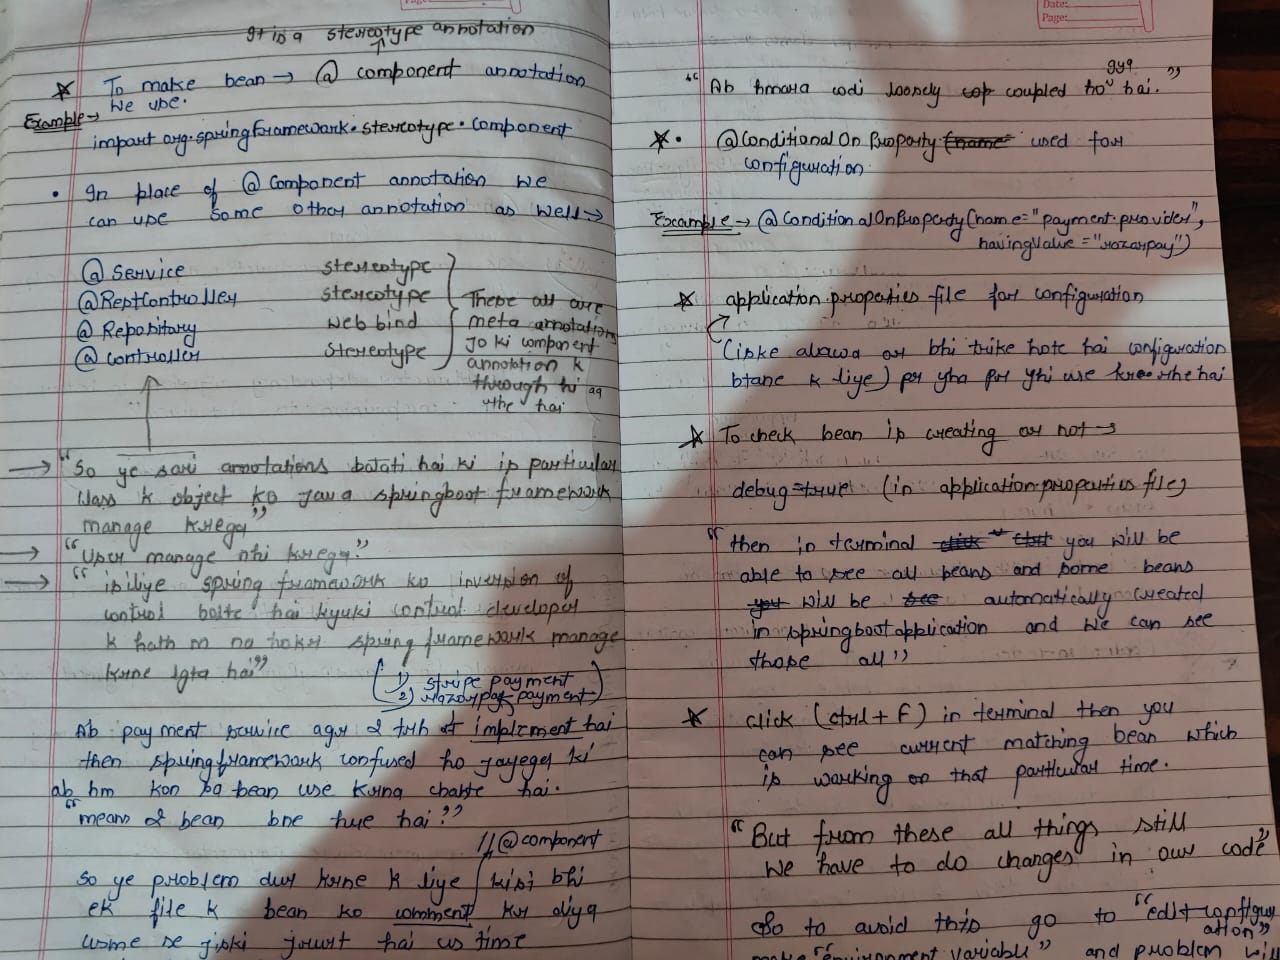 It is a stereotype annotation
To make bean → @ component annotation
we use.
Example →
import org.springframework.stereotype.component
• In place of @ Component annotation we
can use some other annotation as well →
@ Service stereotype
@RestController stereotype
@ Repository web bind
@ controller stereotype
These all are
meta annotations
jo ki component
annotation k
through hi aa
rhe hai
→ "So ye sari annotations batati hai ki is particular
class k object ko java springboot framework
manage krega"
→ "User manage nhi krega."
→ "isiliye spring framework ko inversion of
control bolte hai kyuki control developer
k hath m na hokr spring framework manage
krne lgta hai"
1) stripe payment
2) razorpay payment
Ab payment service agr 2 trh se implement hai
then springframework confused ho jayega ki
ab hm kon sa bean use krna chahte hai.
"means 2 bean bne hue hai"
//@component
So ye problem dur krne k liye kisi bhi
ek file k bean ko comment kr diya
usme se jiski jrurt hai us time
Date:
Page:
"Ab hmara code loosely coupled ho gya hai."
• @ConditionalOnProperty (name used for
configuration.
Example → @ConditionalOnProperty(name="payment.provider",
havingValue="razorpay")
application.properties file for configuration
(iske alawa or bhi trike hote hai configuration
btane k liye) pr yha pr yhi use kr rhe hai
To check bean is creating or not →
debug=true (in application.properties file)
"then in terminal click ctrl you will be
able to see all beans and some beans
you will be see automatically created
in springboot application and we can see
those all"
click (ctrl + F) in terminal then you
can see current matching bean which
is working on that particular time.
"But from these all things still
we have to do changes in our code"
So to avoid this go to "edit configuration"
make "environment variable" and problem will